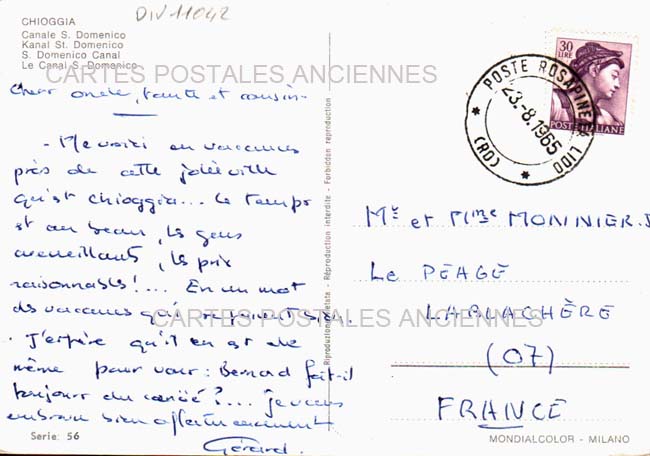 DIV 11042
CHIOGGIA
Canale S. Domenico
Kanal St. Domenico
S. Domenico Canal
Le Canal S. Domenico
CARTES POSTALES ANCIENNES
Cher oncle, tante et cousin
- Me voici en vacances
près de cette jolie ville
qu'est chioggia... Le temps
est au beau, les gens
accueillants, les prix
raisonnables!.... En un mot
des vacances qui
CARTES POSTALES ANCIENNES
- J'espère qu'il en est de
même pour vous : Bernard fait-il
toujours du canoë?.... Je vous
embrasse bien affectueusement
Gérard.
Serie: 56
Riproduzione vietata - Réproduction interdite - Forbidden reproduction
30
LIRE
POSTE ITALIANE
POSTE ROSAPINETA LIDO
23.-8.1965
(RO)
Mr et Mme MONNIER.
Le PÉAGE
LABLACHÈRE
(07)
FRANCE
MONDIALCOLOR - MILANO